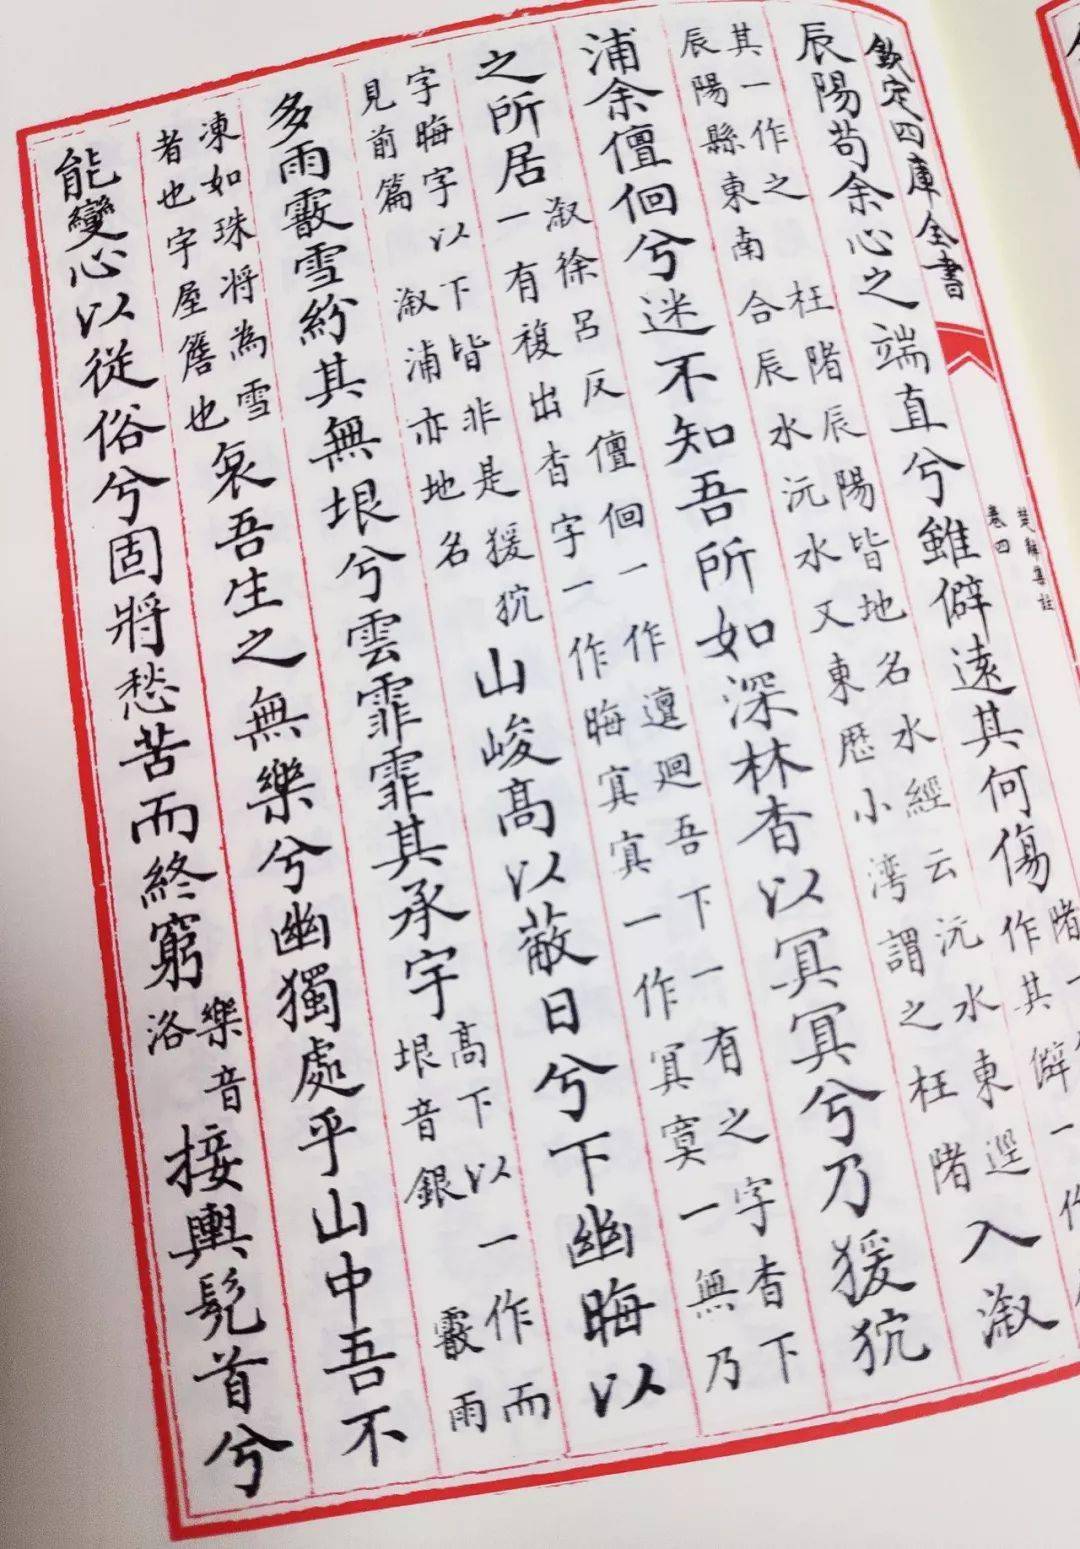 欽定四庫全書
楚辭集註
卷四
辰陽苟余心之端直兮雖僻遠其何傷
陼一
作其僻一作
其一作之 枉陼辰陽皆地名水經云沅水東逕
辰陽縣東南合辰水沅水又東歷小灣謂之枉陼
入漵
浦余儃佪兮迷不知吾所如深林杳以冥冥兮乃猨狖
之所居
漵徐呂反儃佪一作邅迴吾下一有之字杳下
一有複出杳字一作晦冥冥一作冥寞一無乃
字晦字以下皆非是猨狖
見前篇 漵浦亦地名
山峻高以蔽日兮下幽晦以
多雨霰雪紛其無垠兮雲霏霏其承宇
高下以一作而
垠音銀 霰雨
凍如珠將為雪
者也宇屋簷也
哀吾生之無樂兮幽獨處乎山中吾不
能變心以從俗兮固將愁苦而終窮
樂音
洛
接輿髡首兮